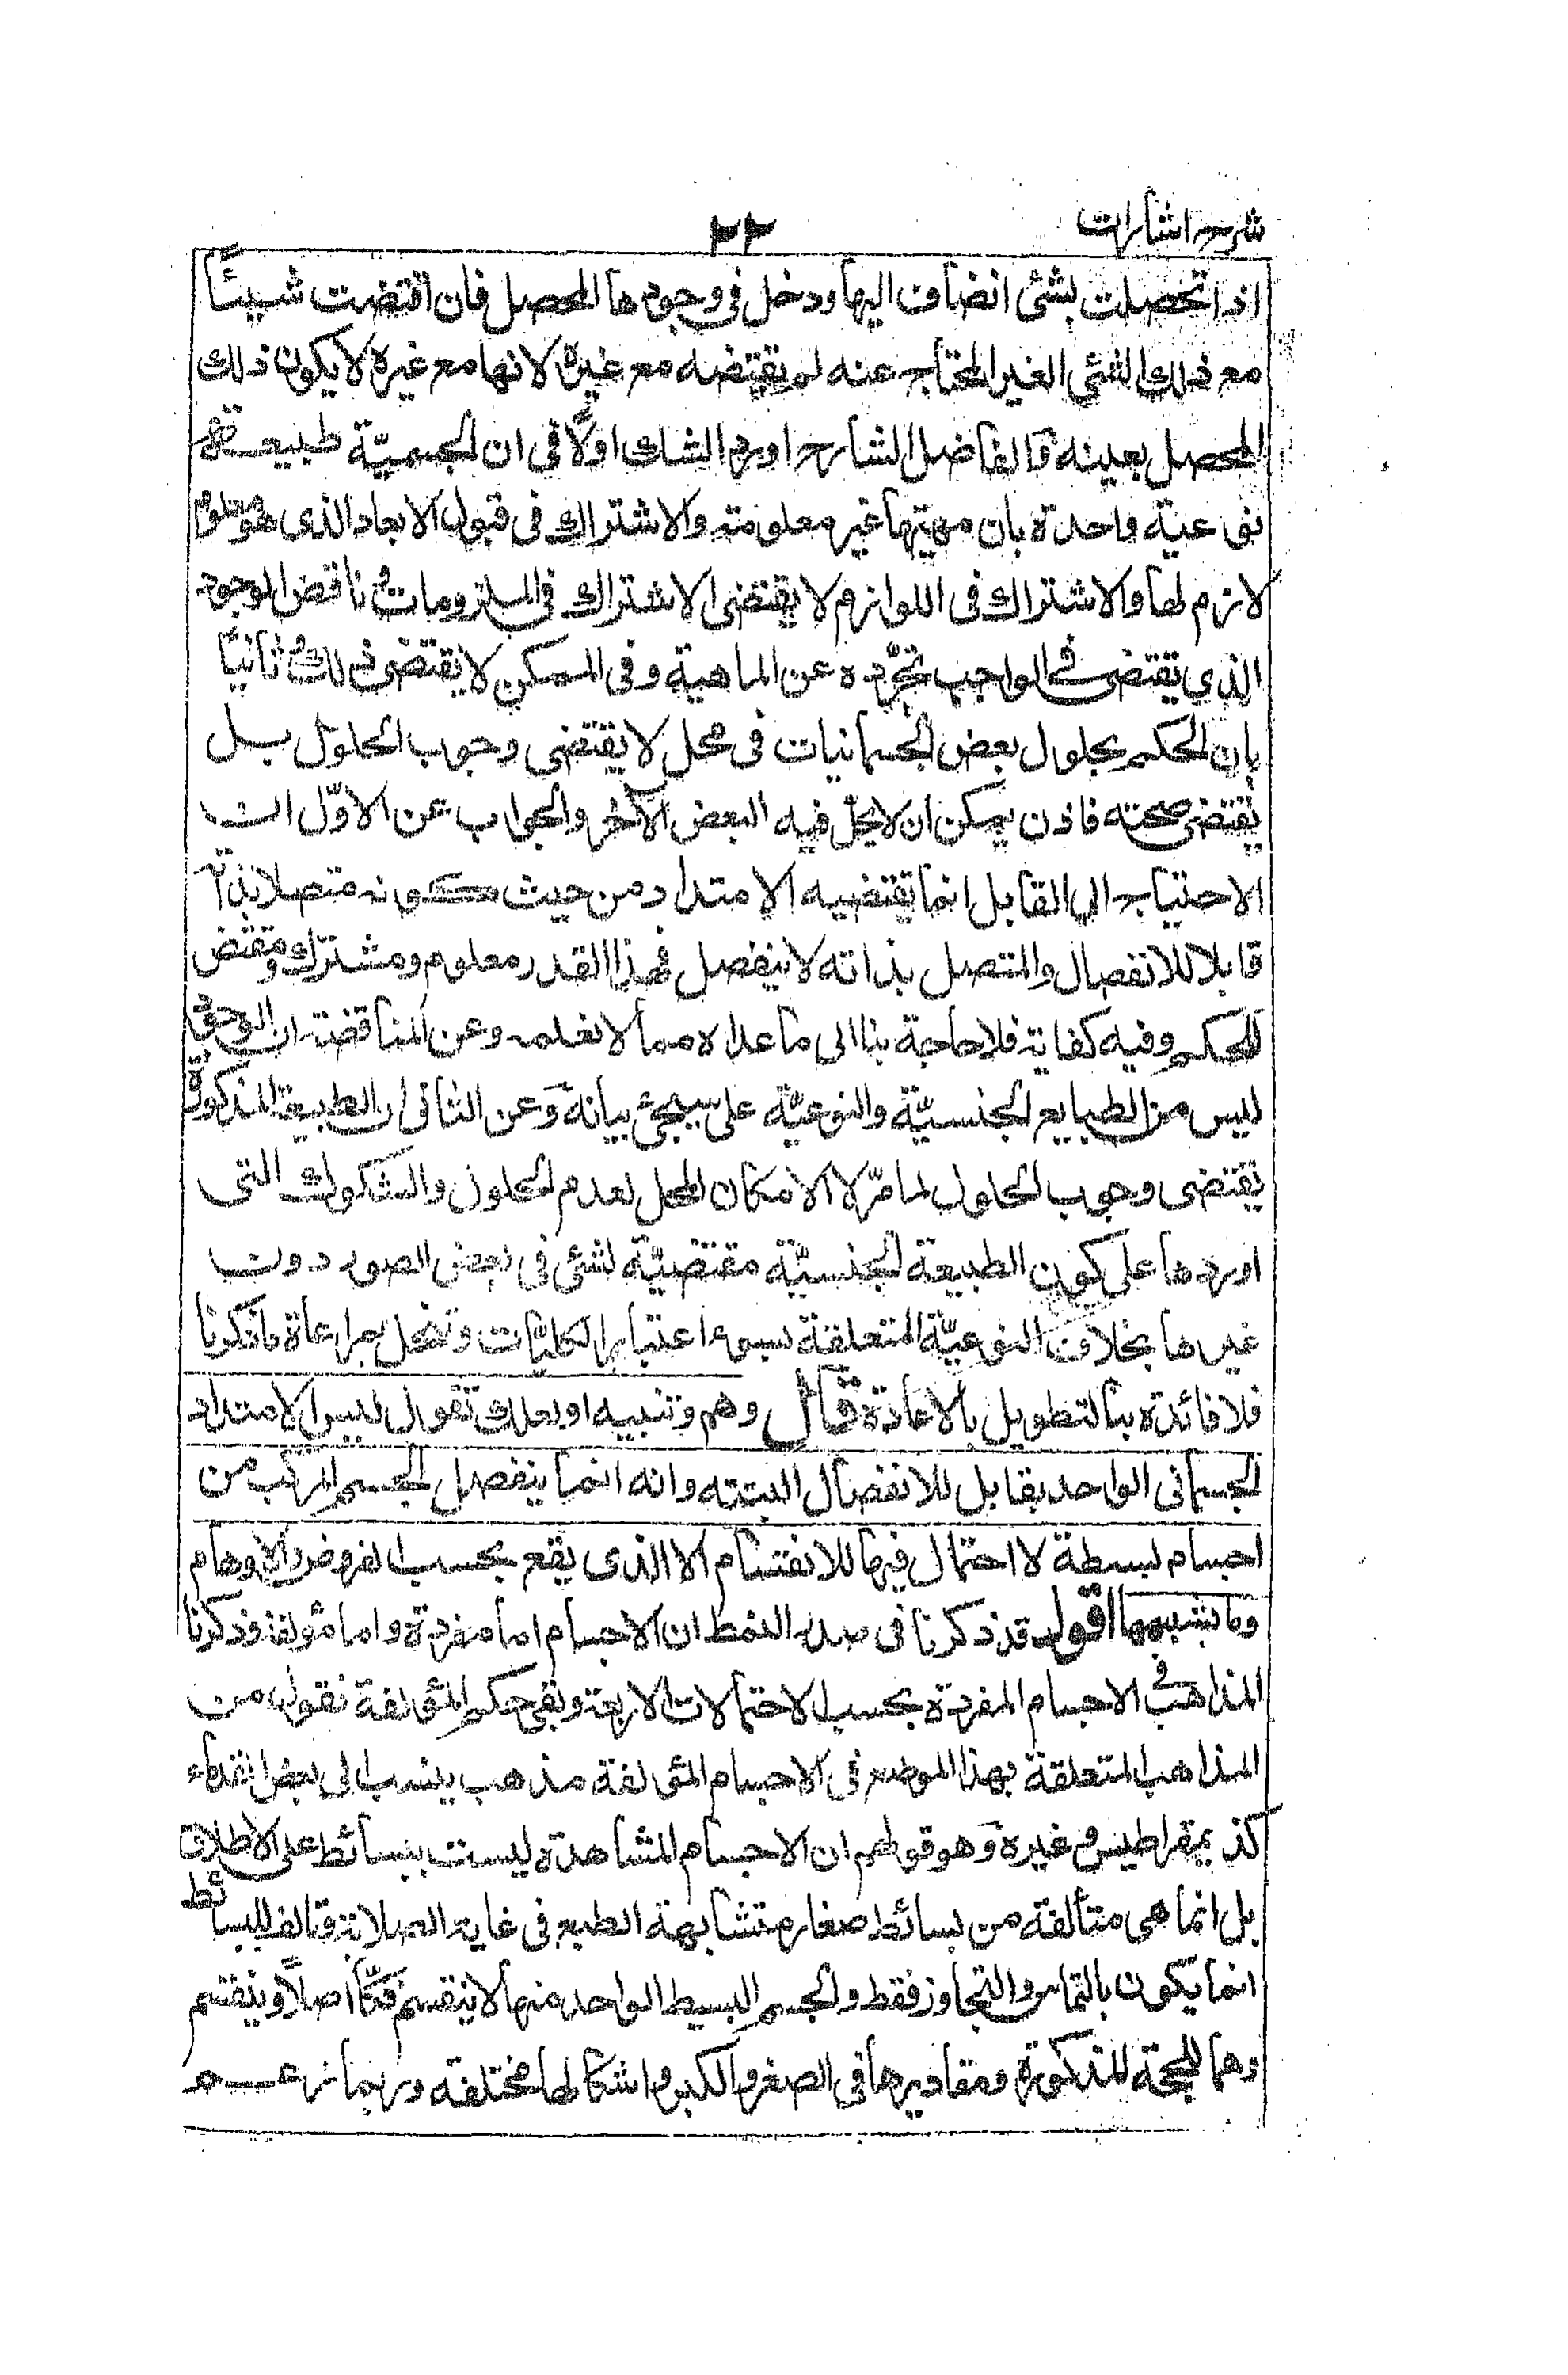 شرح اشارات
٢٢
اذا تحصلت بشئ انضاف اليها ودخل فى وجودها المحصل فان اقتضت شيئًا
مع ذلك الشئ الغير المحتاج عنه لم يقتضه مع غيره لانها مع غيره لا يكون ذلك
المحصل بعينه والفاضل الشارح اورد الشك اولًا فى ان الجسميّة طبيعة
نوعية واحدة بان مهيتها غير معلومة والاشتراك فى قبول الابعاد الذى هو معلوم
لازم لها والاشتراك فى اللوازم لا يقتضى الاشتراك فى الملزومات وناقض الوجود
الذى يقتضى فى الواجب تجرّده عن الماهية وفى الممكن لا يقتضى ذلك وثانيًا
بان الحكم بحلول بعض الجسمانيات فى محل لا يقتضى وجوب الحلول بل
يقتضى صحته فاذن يمكن ان لا يحلّ فيه البعض الآخر والجواب عن الاوّل ان
الاحتياج الى القابل انما يقتضيه الامتداد من حيث كونه متصلا بذاته
قابلا للانفصال والمتصل بذاته لا ينفصل فهذا القدر معلوم ومشترك ومقتض
للحكم وفيه كفاية فلا حاجة بنا الى ما عداه مما لا نعلمه وعن المناقضة ان الوجود
ليس من الطبايع الجنسيّة والنوعيّة على سيجئ بيانه وعن الثانى ان الطبيعة المذكورة
يقتضى وجوب الحلول لما مرّ لا الامكان المحل لعدم الحلول والشكوك التى
اوردها على كون الطبيعة الجنسيّة مقتضيّة لشئ فى بعض الصور دون
غيرها بخلاف النوعيّة المتعلقة بسوء اعتبار الكليّات وتنحل بمراعاة ما ذكرنا
فلا فائدة بنا لتطويل بالاعادة قال وهم وتنبيه او لعلك تقول ليس الامتداد
الجسمانى الواحد بقابل للانفصال البتته وانه انما ينفصل الجسم المركب من
اجسام بسيطة لا احتمال فيها للانقسام الا الذى يقع بحسب الفروض والاوهام
وما يشبهها اقول قد ذكرنا فى صدر النمط ان الاجسام اما مفردة واما مؤلفة وذكرنا
المذاهب فى الاجسام المفردة بحسب الاحتمالات الاربعة وبقى حكم المؤلفة نقول من
المذاهب المتعلقة بهذا الموضع فى الاجسام المؤلفة مذهب ينسب الى بعض القدماء
كذيمقراطيس وغيره وهو قولهم ان الاجسام المشاهدة ليست ببسائط على الاطلاق
بل انما هى متألفة من بسائط صغار متشابهة الطبع فى غاية الصلابة وتالف البسائط
انما يكون بالتماس والتجاوز فقط والجسم البسيط الواحد منها لا ينقسم فكّا اصلًا وينقسم
وهما للحجة المذكورة ومقاديرها فى الصغر والكبر واشكالها مختلفة وربما زعم